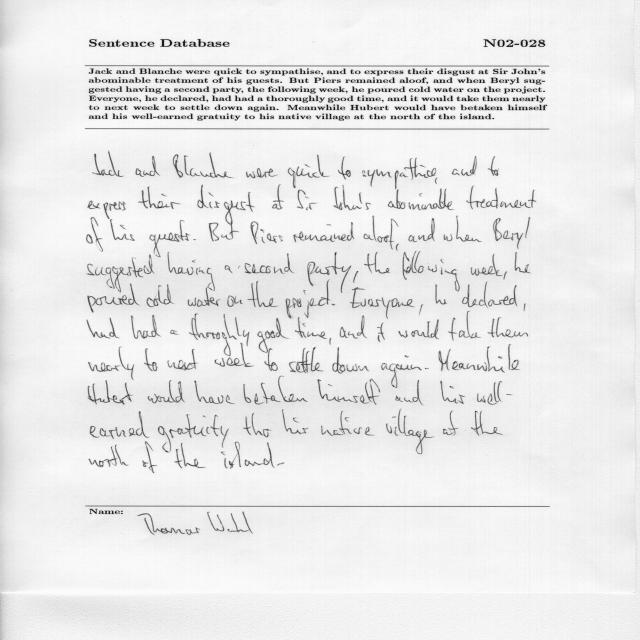 Sentence Database N02-028
Jack and Blanche were quick to sympathise, and to express their disgust at Sir John's
abominable treatment of his guests. But Piers remained aloof, and when Beryl sug-
gested having a second party, the following week, he poured cold water on the project.
Everyone, he declared, had had a thoroughly good time, and it would take them nearly
to next week to settle down again. Meanwhile Hubert would have betaken himself
and his well-earned gratuity to his native village at the north of the island.
Jack and Blanche were quick to sympathise, and to
express their disgust at Sir John's abominable treatment
of his guests. But Piers remained aloof, and when Beryl
suggested having a second party, the following week, he
poured cold water on the project. Everyone, he declared,
had had a thoroghly good time, and it would take them
nearly to next week to settle down again. Meanwhile
Hubert would have betaken himself and his well-
earned gratuity tho his native village at the
north of the island.
Name:
Thomas